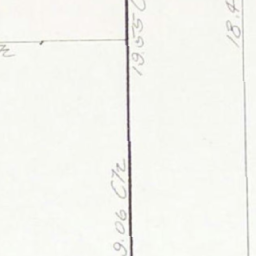 19.55 C
18.4
9.06 Ch